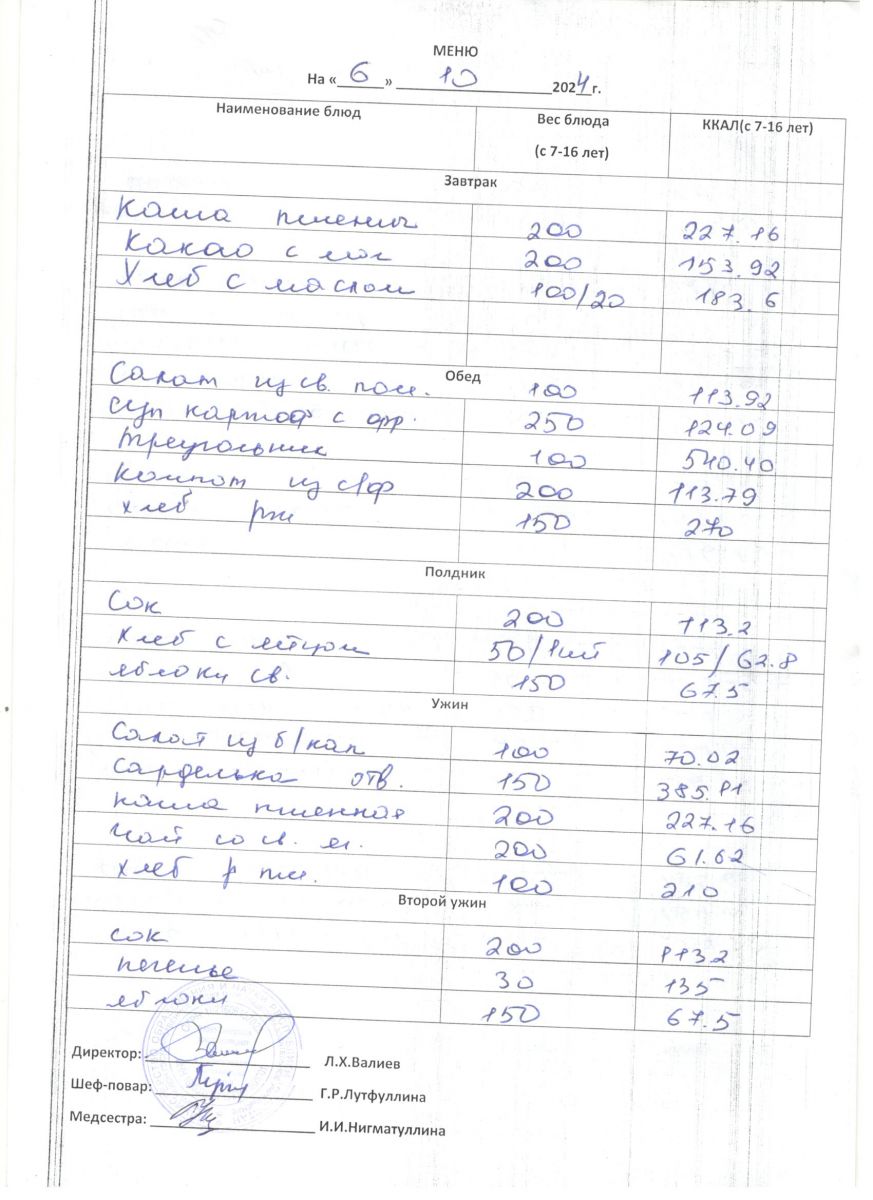 МЕНЮ
На «6» 10 2024 г.
Наименование блюд Вес блюда (с 7-16 лет) ККАЛ(с 7-16 лет)
Завтрак
Каша пшенич 200 227.16
Какао с мол 200 153.92
Хлеб с маслом 100/20 183.6
Обед
Салат из св. пом. 100 113.92
Суп картоф с фр. 250 124.09
Треугольник 100 540.40
Компот из с/ф 200 113.79
хлеб рж 150 270
Полдник
Сок 200 113.2
Хлеб с яйцом 50/1шт 105/62.8
яблоки св. 150 67.5
Ужин
Салат из б/кап 100 70.02
Сарделька отв. 150 385.81
каша пшенная 200 227.16
Чай со св. м. 200 61.62
хлеб пш. 100 210
Второй ужин
сок 200 113.2
печенье 30 135
яблоки 150 67.5
Директор: Л.Х.Валиев
Шеф-повар: Г.Р.Лутфуллина
Медсестра: И.И.Нигматуллина